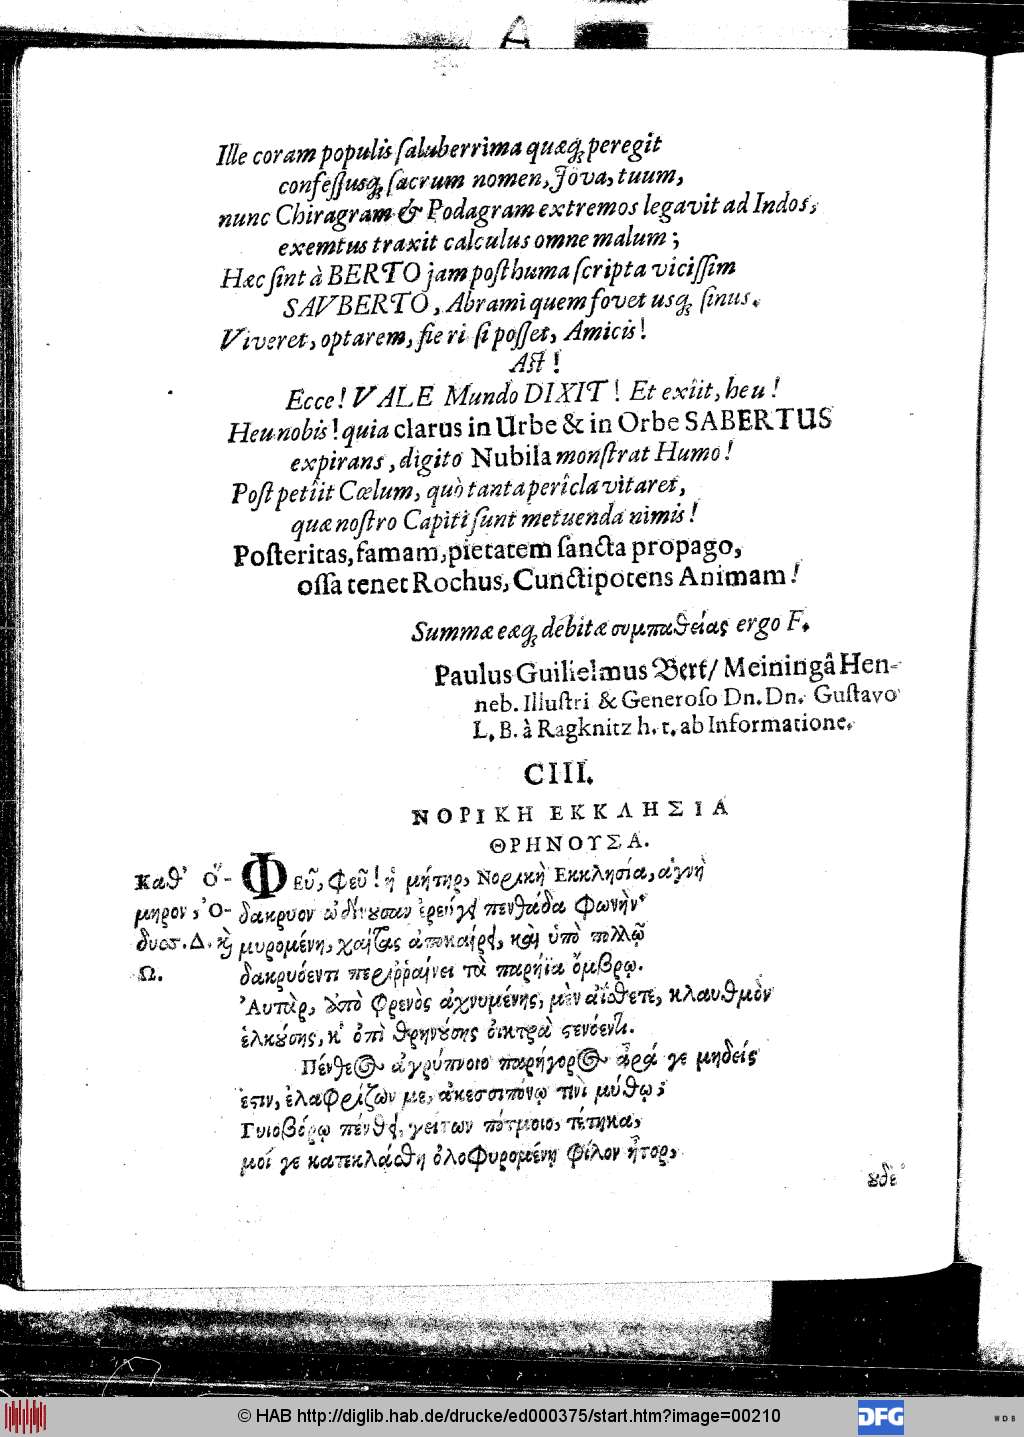 Ille coram populis ſaluberrima quæq́ꝫ peregit
confeſſusq́ꝫ ſacrum nomen, Jova, tuum,
nunc Chiragram & Podagram extremos legavit ad Indos,
exemtus traxit calculus omne malum;
Hæc ſint à BERTO jam poſthuma ſcripta viciſſim
SAVBERTO, Abrami quem fovet usq́ꝫ ſinus.
Viveret, optarem, fieri ſi poſſet, Amicis!
Aſt!
Ecce! VALE Mundo DIXIT! Et exiit, heu!
Heu nobis! quia clarus in Urbe & in Orbe SABERTUS
expirans, digito Nubila monſtrat Humo!
Poſt petîit Cœlum, quò tanta perîcla vitaret,
quæ noſtro Capiti ſunt metuenda nimis!
Poſteritas, famam, pietatem ſancta propago,
oſſa tenet Rochus, Cunctipotens Animam!
Summæ eæq́ꝫ debitæ συμπαθείας ergo F.
Paulus Guilielmus Bert/ Meiningâ Hen-
neb. Illuſtri & Generoſo Dn. Dn. Guſtavo
L. B. à Ragknitz h. t. ab Informatione.
CIII.
ΝΟΡΙΚΗ ΕΚΚΛΗΣΙΑ
ΘΡΗΝΟΥΣΑ.
Καθ' Ὅ-
μηρον, Ὀ-
δυσσ. Δ. κὶ
Ω.
Φεῦ, φεῦ! ἡ μήτηρ, Νορικὴ Εκκλησία, ἁγνὴ
δακρυον ὠδίνουσαν ἐρεύγει πενθάδα φωνήν·
μυρομένη, χαίτας ἀποκαίρει, καὶ ὑπὸ πολλῷ
δακρυόεντι περιῤῥαίνει τὰ παρήϊα ὄμβρῳ.
Ἀυτὰρ, ἀπὸ φρενὸς ἀχνυμένης, μὲν αἴσθετε, κλαυθμὸν
ἑλκούσης, κὶ ὀπὶ θρηνούσης οἰκτρὰ στενόεντι.
Πένθεος ἀγρύπνοιο παρήγορος ἆρά γε μηδείς
ἐστιν, ἐλαφρίζων με, ἀκεσσιπόνῳ τινὶ μύθῳ;
Γυιοβόρῳ πένθει, γείτων πότμοιο, τέτηκα,
μοί γε κατεκλάσθη ὀλοφυρομένῃ φίλον ἦτορ,
οὐδὲ
© HAB http://diglib.hab.de/drucke/ed000375/start.htm?image=00210
DFG
WDB